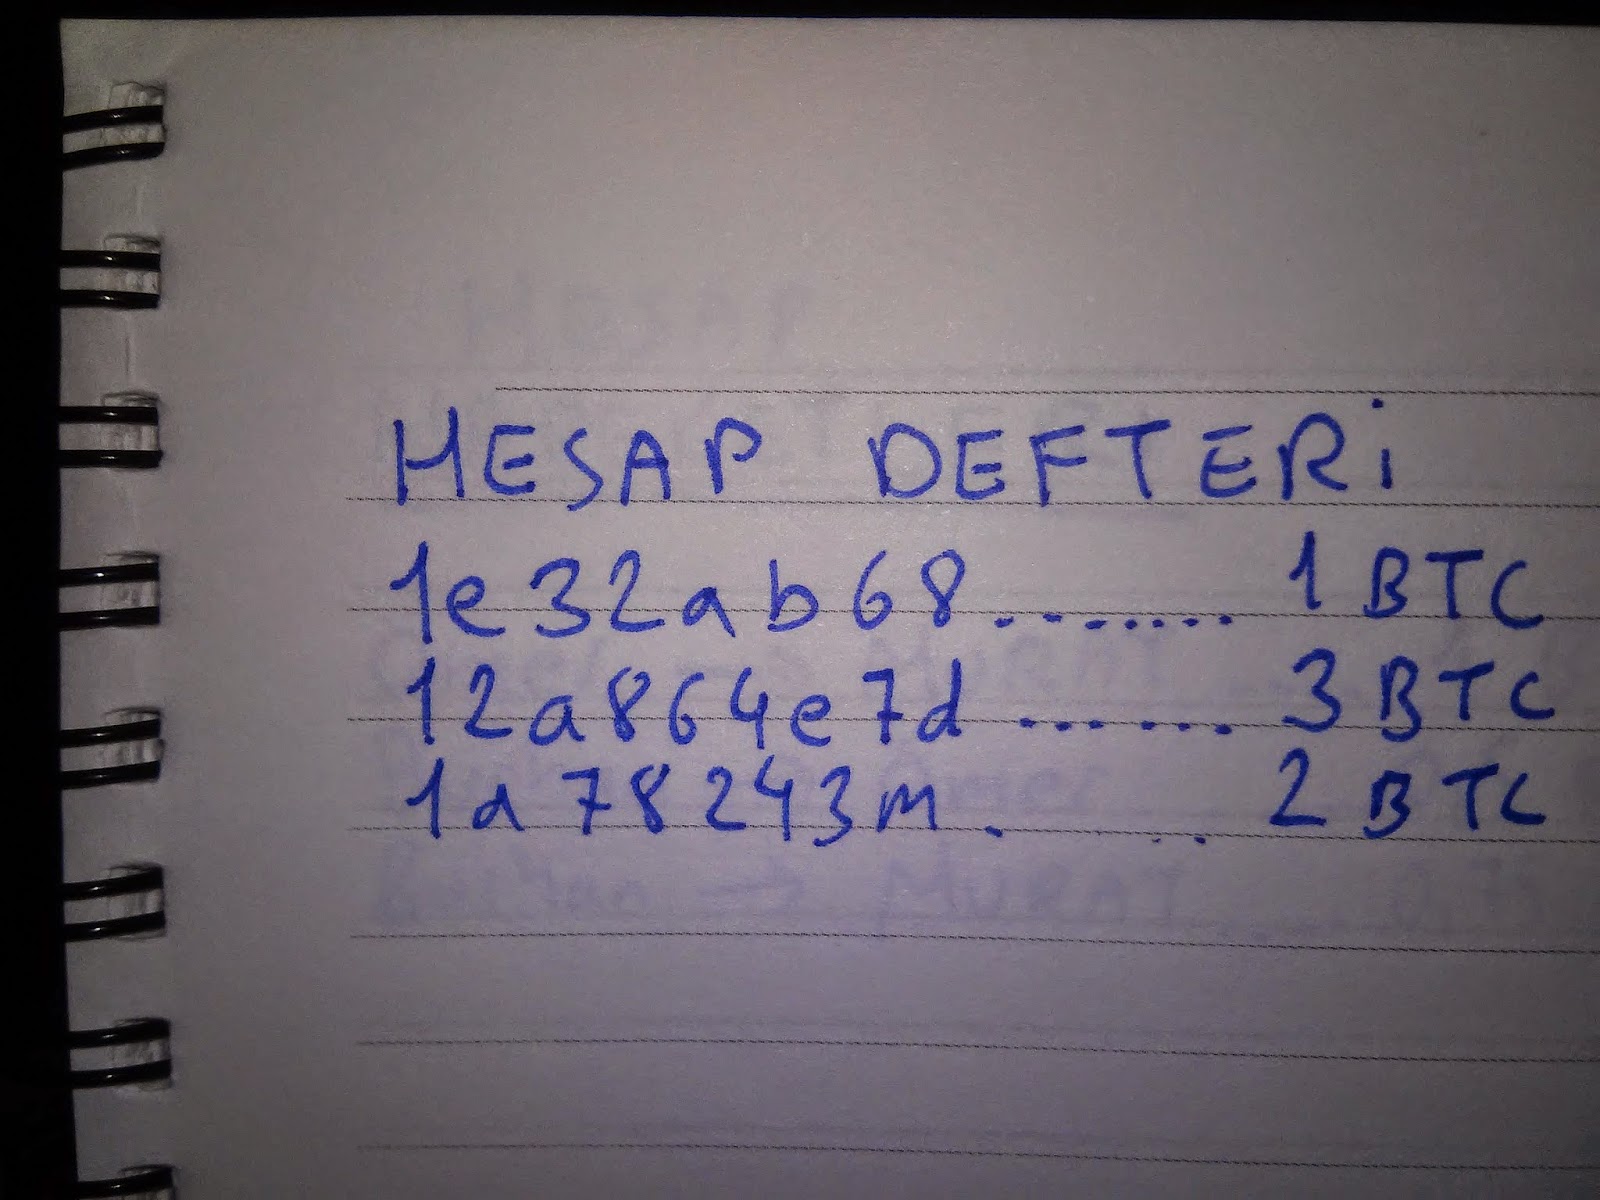 HESAP DEFTERİ
1e32ab68....... 1 BTC
12a864e7d ....... 3 BTC
1a78243m. .. 2 BTC